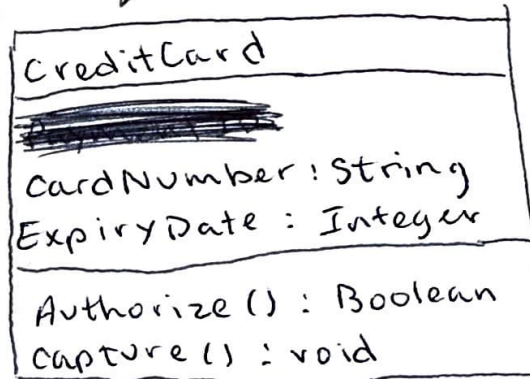 CreditCard
CardNumber : String
ExpiryDate : Integer
Authorize () : Boolean
Capture () : void